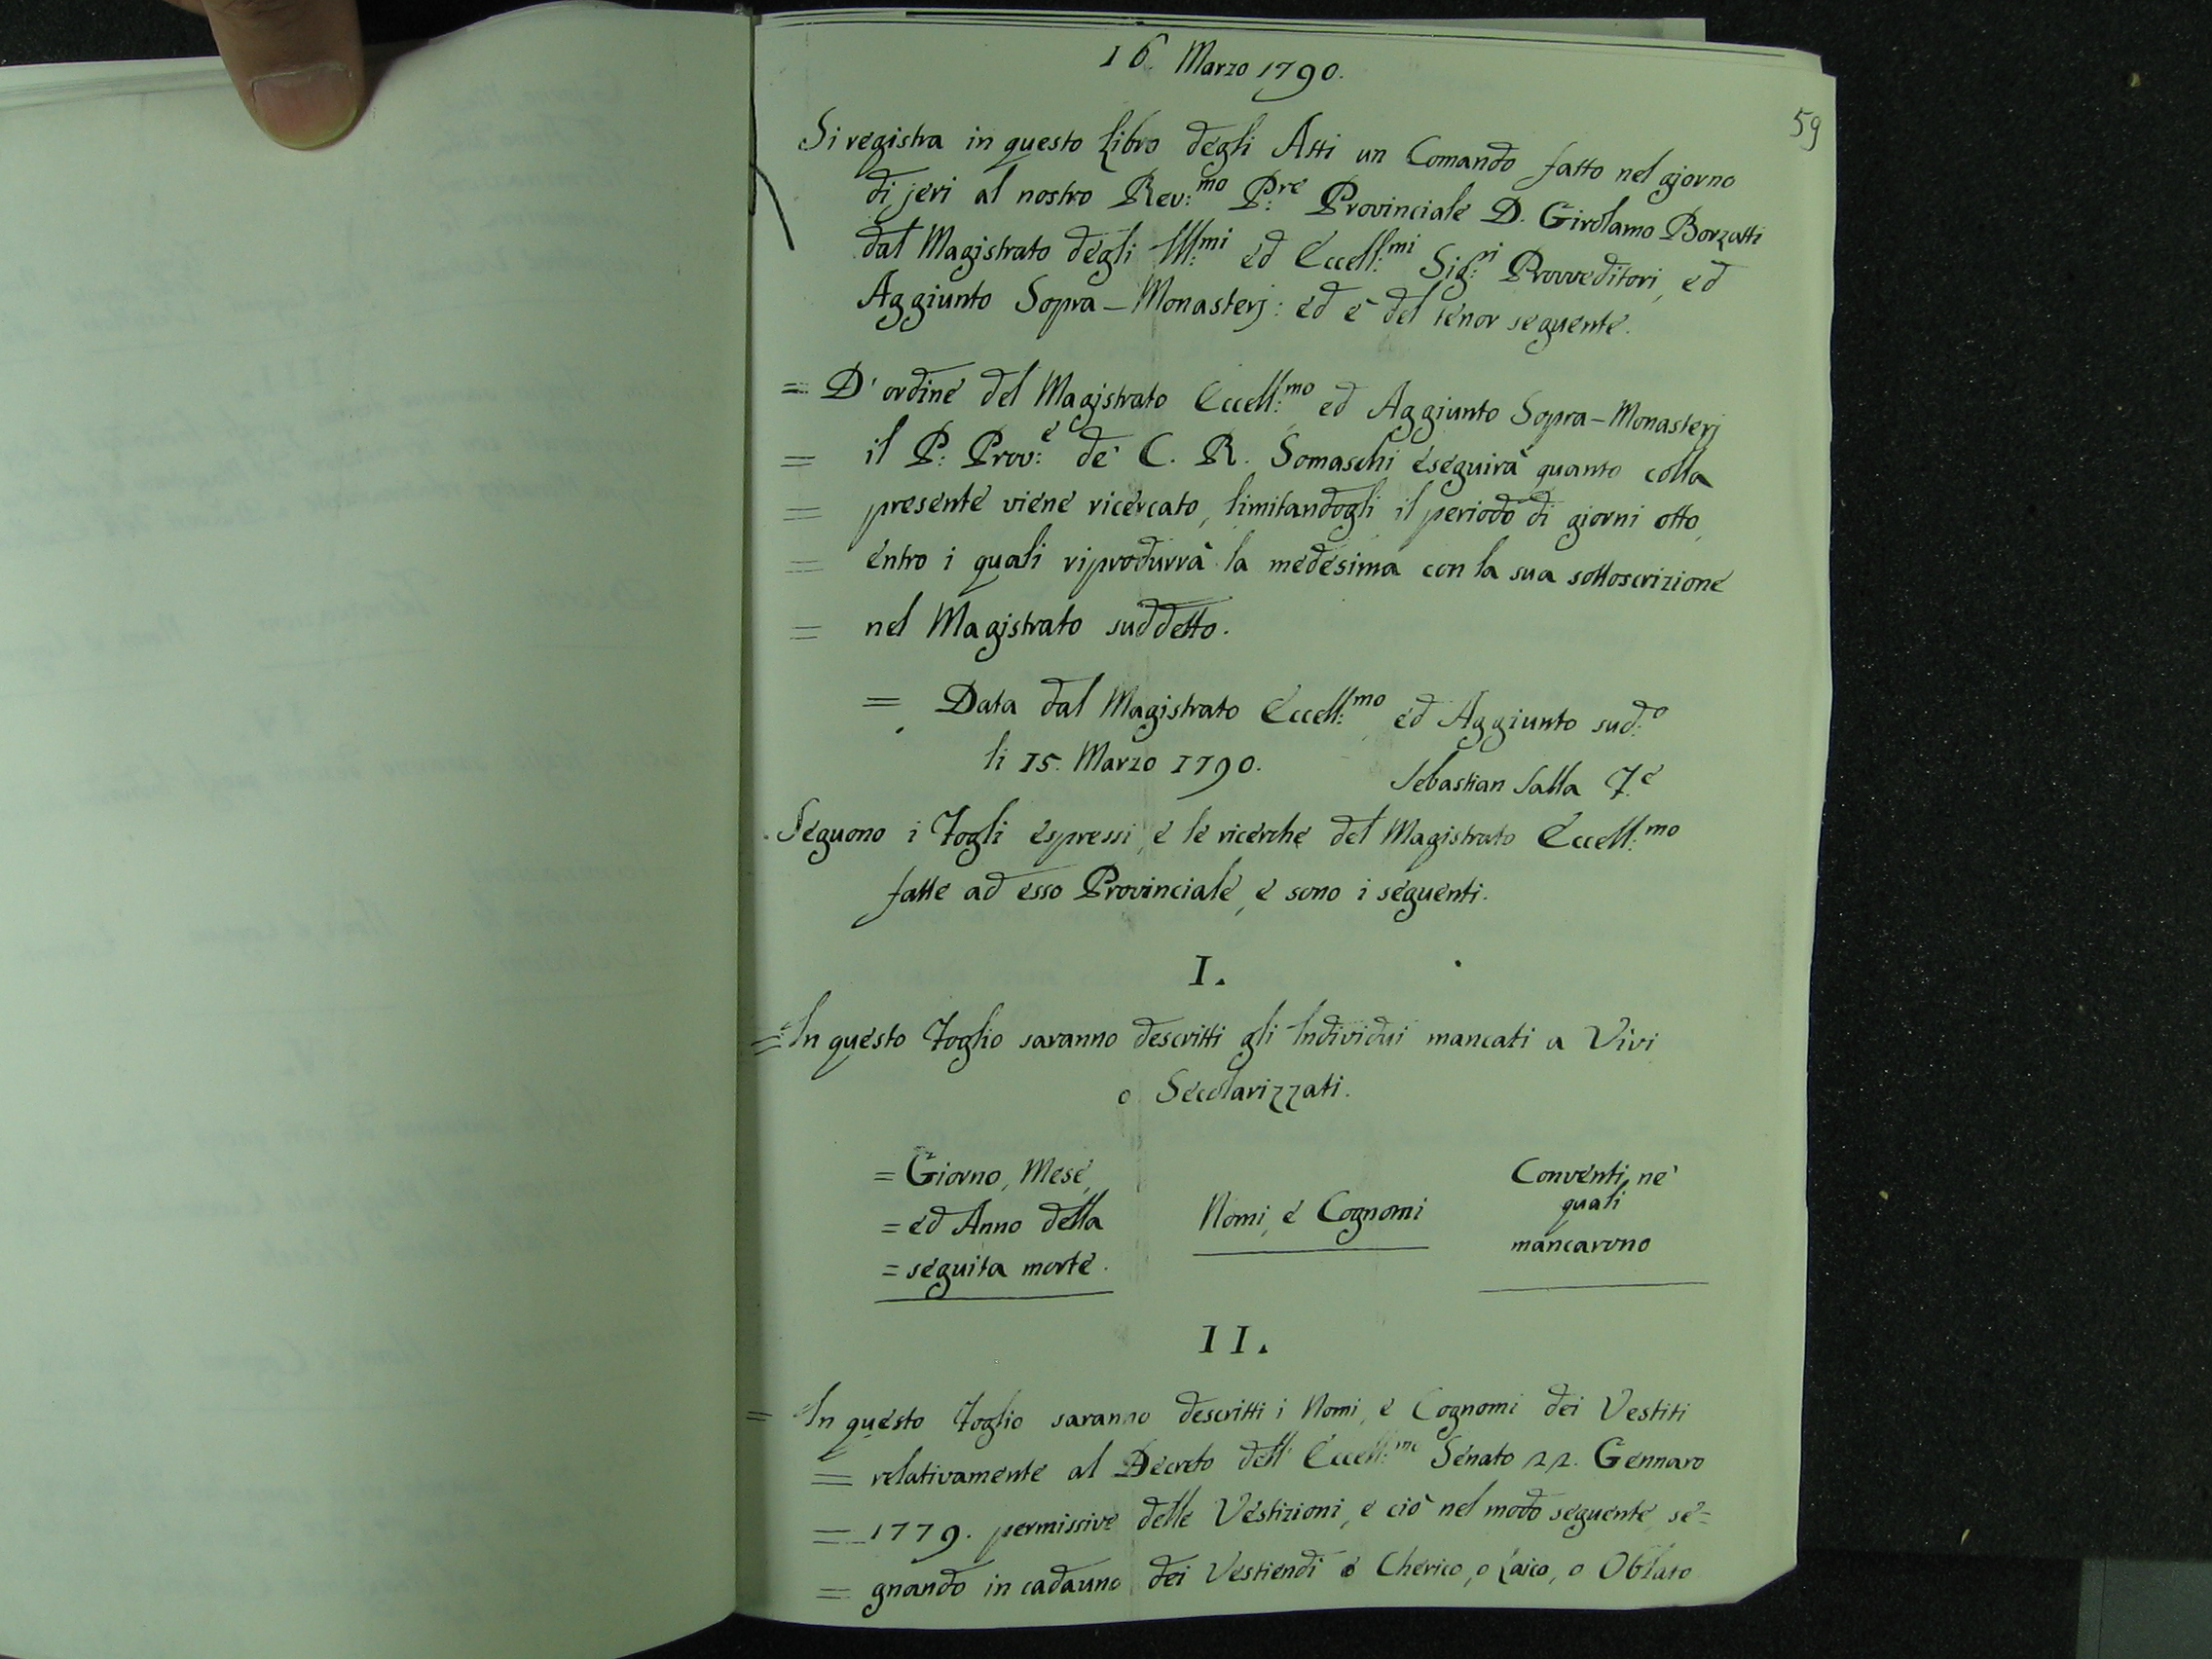 16. Marzo 1790.
59
Si registra in questo Libro degli Atti un Comando fatto nel giorno
di jeri al nostro Rev:mo P:re Provinciale D. Girolamo Borzatti
dal Magistrato degli Ill:mi ed Eccell:mi Sig:ri Provveditori, ed
Aggiunto Sopra-Monasterj: ed è del tenor seguente.
= D'ordine del Magistrato Eccell:mo ed Aggiunto Sopra-Monasterj
= il P: Prov:e de' C. R. Somaschi eseguirà quanto colla
= presente viene ricercato, limitandogli il periodo di giorni otto,
= entro i quali riprodurrà la medesima con la sua sottoscrizione
= nel Magistrato suddetto.
= Data dal Magistrato Eccell:mo ed Aggiunto sud:o
li 15. Marzo 1790.
Sebastian Salla
Seguono i Fogli espressi, e le ricerche del Magistrato Eccell:mo
fatte ad esso Provinciale, e sono i seguenti.
I.
= In questo Foglio saranno descritti gli Individui mancati a Vivi
o Secolarizzati.
= Giorno, Mese,
= ed Anno della
= seguita morte.
Nomi, e Cognomi
Conventi, ne'
quali
mancarono
II.
= In questo Foglio saranno descritti i Nomi, e Cognomi dei Vestiti
= relativamente al Decreto dell' Eccell:mo Senato 22. Gennaro
= 1779. permissive delle Vestizioni, e ciò nel modo seguente, se=
= gnando in cadauno dei Vestiendi o Cherico, o Laico, o Oblato